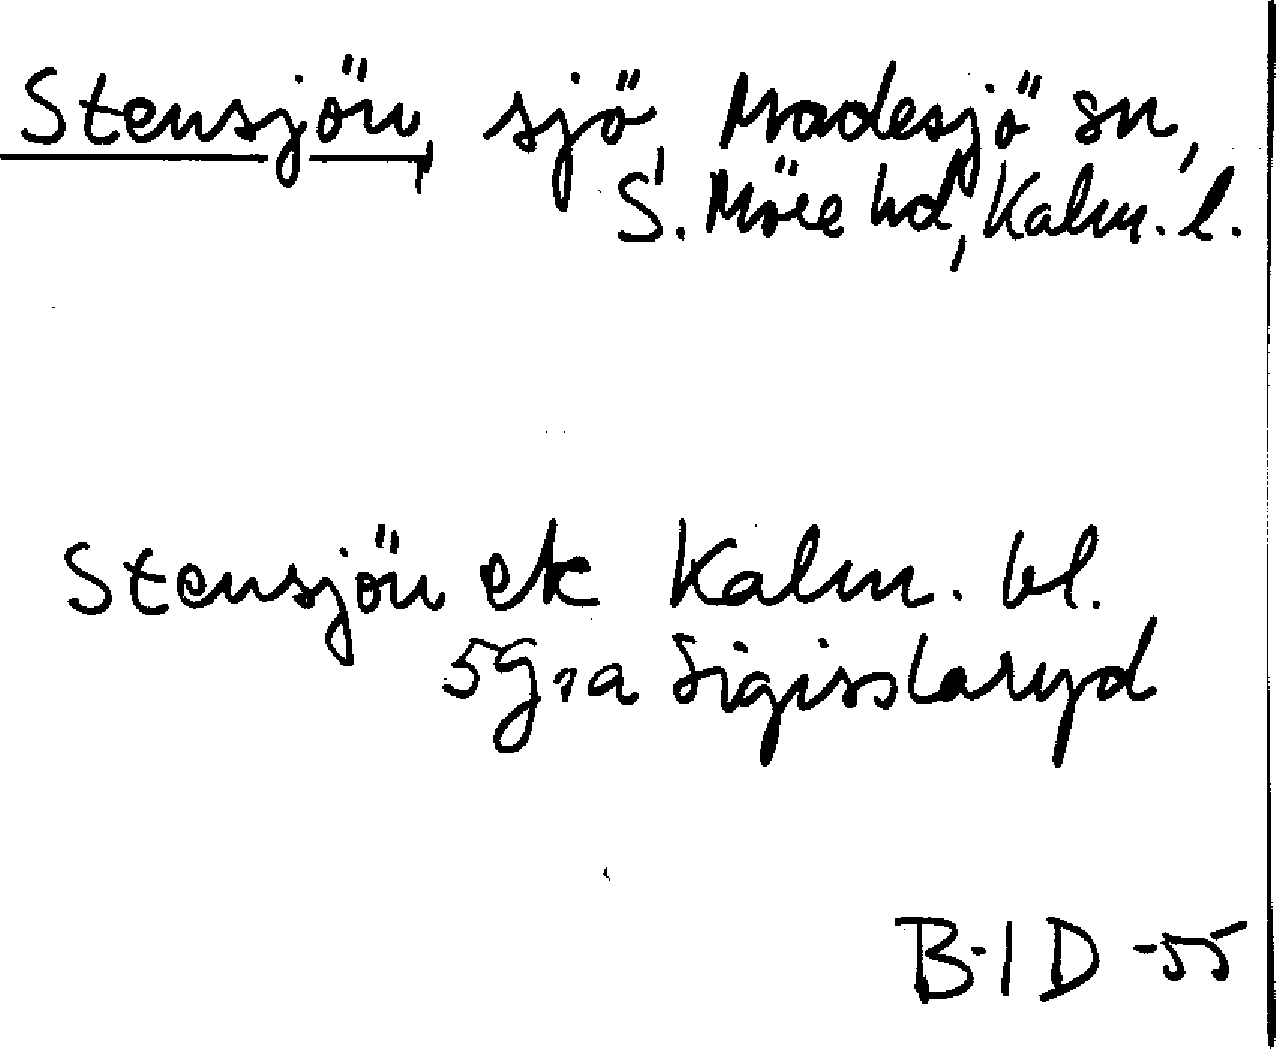 Stensjön, sjö, Madesjö sn,
S. Möre hd, Kalm. l.
Stensjön ek Kalm. bl.
5G,a Sigisslaryd
B-ID -55